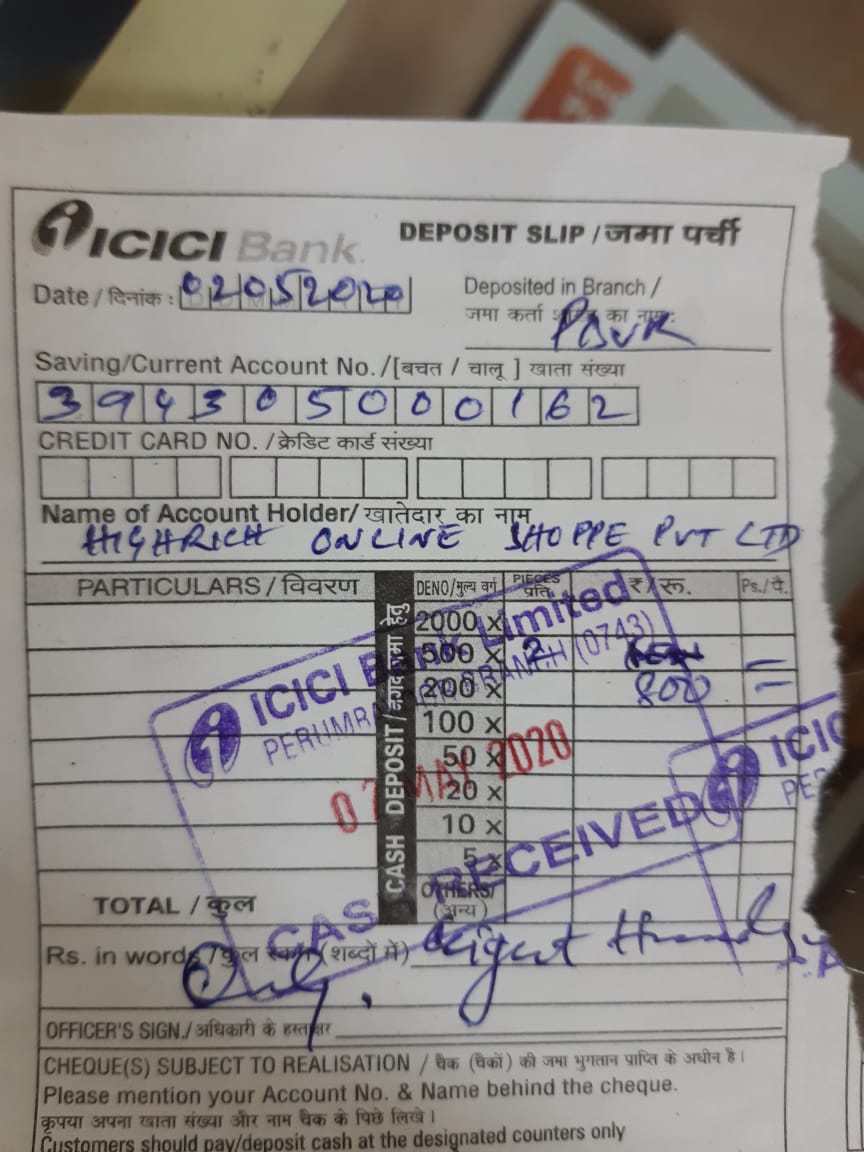 ICICI Bank
DEPOSIT SLIP / जमा पर्ची
Date / दिनांक : 02052020
Deposited in Branch /
जमा कर्ता का नाम:
Saving/Current Account No./[बचत / चालू ] खाता संख्या
394305000162
CREDIT CARD NO. / क्रेडिट कार्ड संख्या
Name of Account Holder/ खातेदार का नाम
HIGHRICH ONLINE SHOPPE PVT LTD
PARTICULARS / विवरण DENO/मुल्य वर्ग PIECES प्रति ₹ / रू. Ps./पै.
CASH DEPOSIT / नगद जमा हेतु
2000 x
500 x 2
200 x 800 =
100 x
50 x
20 x
10 x
5 x
OTHERS/
(अन्य)
TOTAL / कुल
ICICI Bank Limited
BRANCH (0743)
MAY 2020
CASH RECEIVED
ICIC
Rs. in words / कुल (शब्दों में) Eight
Only.
OFFICER'S SIGN./ अधिकारी के हस्ताक्षर
CHEQUE(S) SUBJECT TO REALISATION / चैक (चैकों) की जमा भुगतान प्राप्ति के अधीन है।
Please mention your Account No. & Name behind the cheque.
कृपया अपना खाता संख्या और नाम चैक के पिछे लिखे।
Customers should pay/deposit cash at the designated counters only